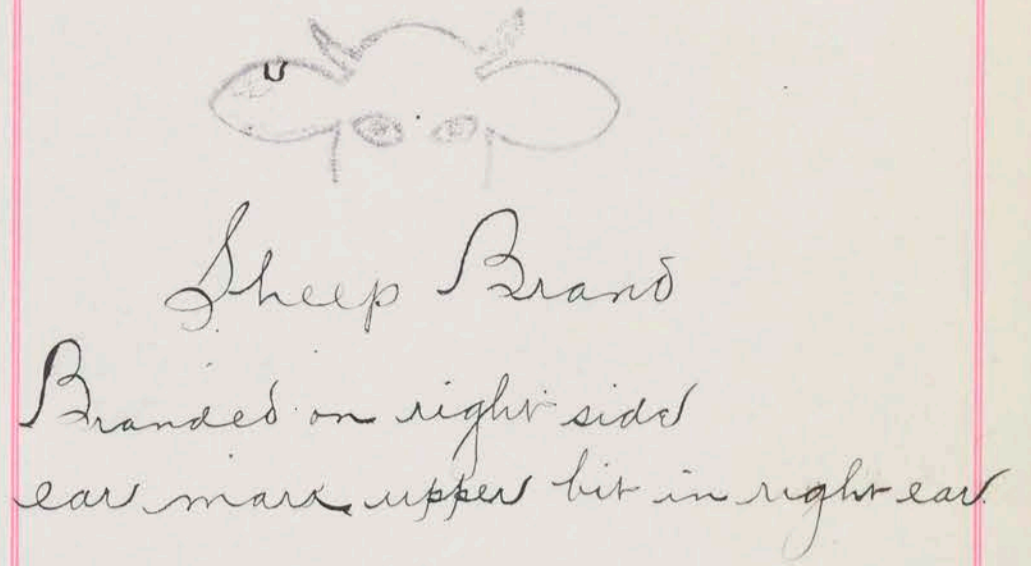 Sheep Brand
Branded on right side
ear mark upper bit in right ear